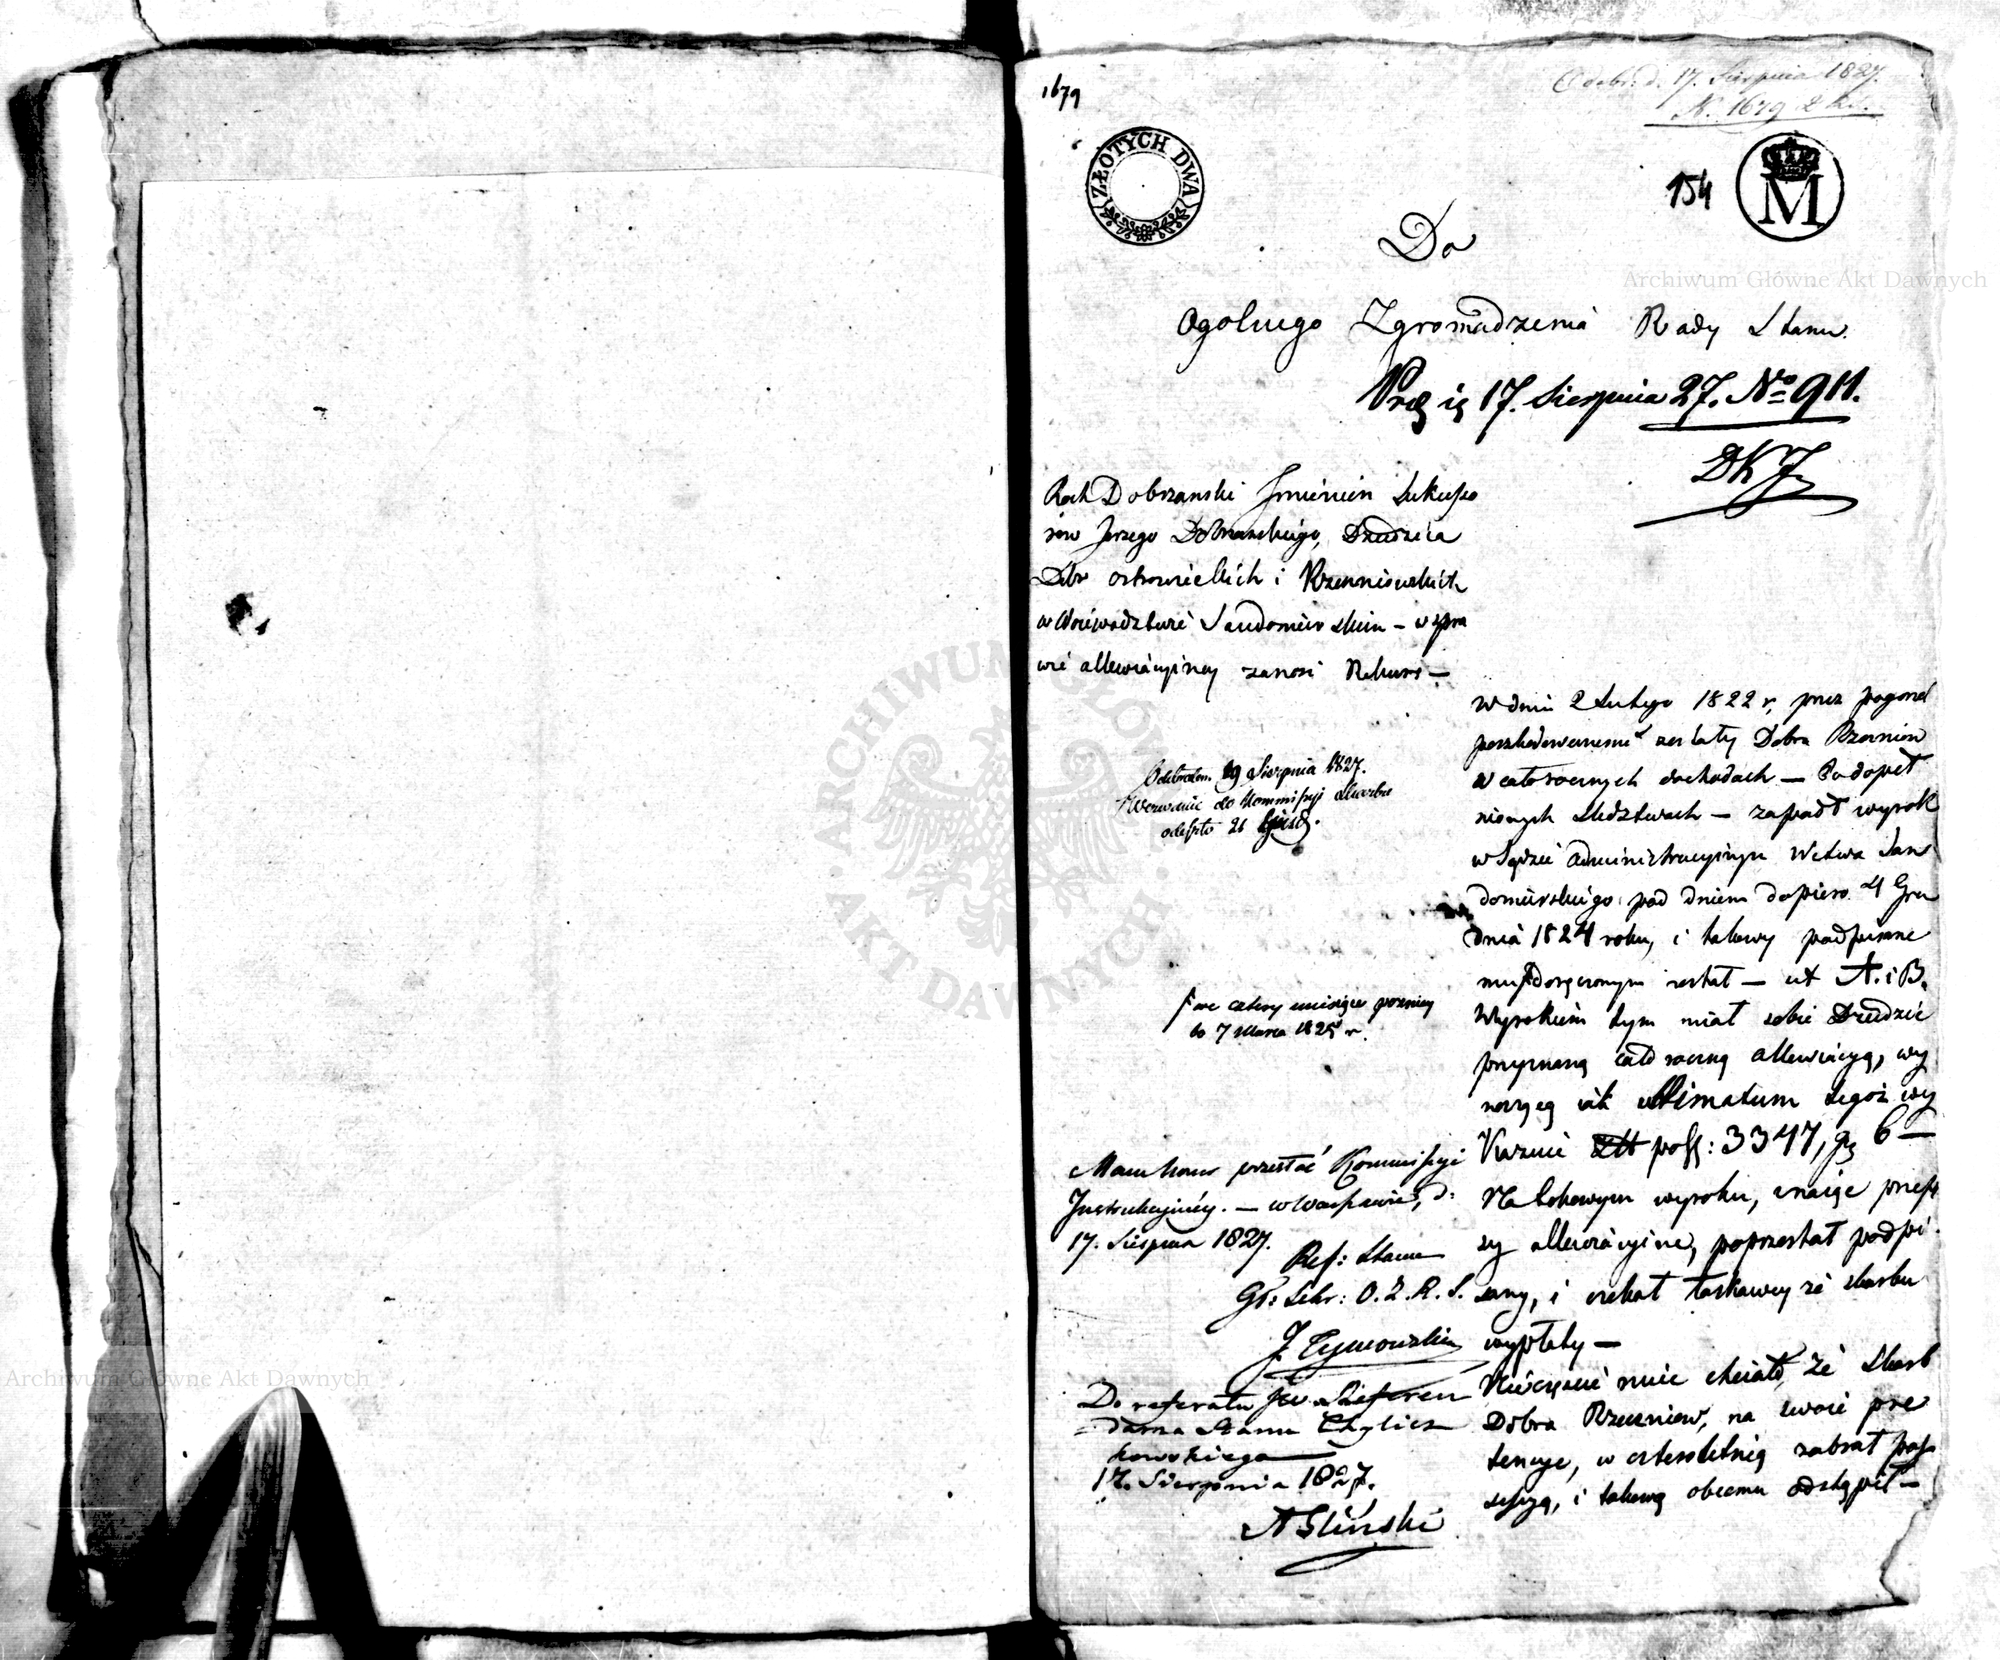 1679
Odebr: d. 17. Sierpnia 1827.
N. 1679
ZŁOTYCH DWA
154
M
Do
Ogolnego Zgromadzenia Rady Stanu.
17. Sierpnia 27. No 911.
Roch Dobrzanski Jmieniem Sukcesso
row Jerzego Dobrzanskiego, Dziedzica
Dobr ostrowieckich i Rzeczniowskich
w Woiewodztwie Sandomierskim – w spra
wie allewiacyiney zanosi Rekurs –
Odebrałem 19 Sierpnia 1827.
Wezwanie do Kommissyi Skarbu
odeszło 21
we cztery miesiące pozniey
to 7 Marca 1825 r.
Mam honor przesłać Kommissyi
Instrukcyiney. – w Warszawie, d:
17. Sierpnia 1827.
Ref: Stanu
Gł: Sekr: O. Z. R. S.
J. Tymowski
Do referatu JW Referen
darza Stanu Chylicz
kowskiego
17. Sierpnia 1827.
A Gliński
W dniu 2 Lutego 1822 r, przez pogorzel
poszkodowanemi zostały Dobra Rzeczniow
w całorocznych dochodach – Po dopeł
nionych Sledztwach – zapadł wyrok
w Sądzie Administracyinym Wctwa San
domirskiego pod dniem dopiero 4 Gru
dnia 1824 roku, i takowy podpisane
mu doręczonym został – ut A. i B.
Wyrokiem tym miał sobie Dziedzic
przyznaną całoroczną allewiacyą, wy
noszącą iak ultimatum tegoż wy
Każuie 3347, gr 6 –
Na takowym wyroku, znaiąc przepi
sy allewiacyine, poprzestał podpi
sany, i czekał łaskawey ze skarbu
wypłaty –
Nieszczęście mieć chciało, że Skarb
Dobra Rzeczniow, na swoie pre
tensye, w czteroletnią zabrał pos
sessyą, i takową obcemu odstąpił –
Archiwum Główne Akt Dawnych
Archiwum Główne Akt Dawnych
ARCHIWUM GŁÓWNE AKT DAWNYCH